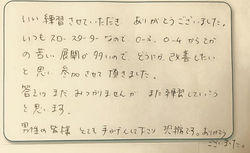 いい練習させていただき ありがとうございました。
いつもスロースターターなので 0-3、0-4からてが
の苦しい展開が多いので、どうにか改善したい
と思い参加させて頂きました。
答えは まだみつかりませんが また練習していこう
と思います。
男性の皆様 とても手かげんして下さり 恐縮です。ありがとう
ございました。